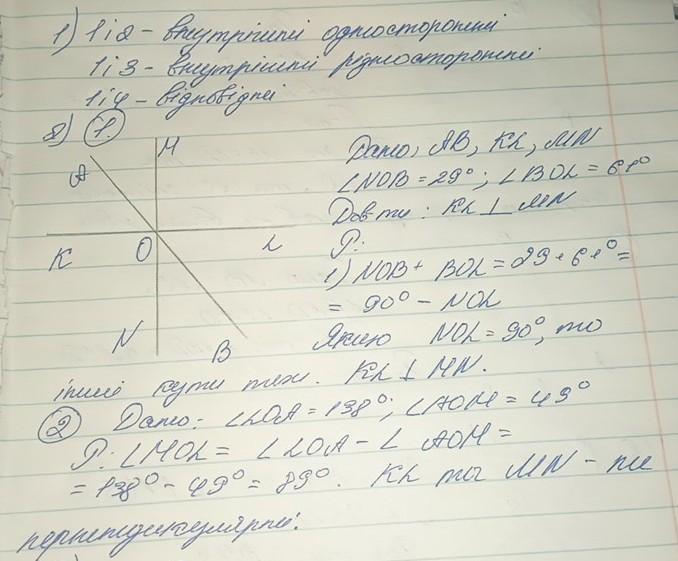 1) 1 і 2 - внутрішні односторонні
1 і 3 - внутрішні різносторонні
1 і 4 - відповідні
2) 1.
M
A
K
O
L
N
B
Дано: AB, KL, MN
∠NOB = 29°; ∠BOL = 61°
Дов-ти: KL ⊥ MN
Р:
1) NOB + BOL = 29 + 61° =
= 90° - NOL
Якщо NOL = 90°, то
інші кути теж. KL ⊥ MN.
2 Дано: ∠LOA = 138°; ∠AOM = 49°
Р: ∠MOL = ∠LOA - ∠AOM =
= 138° - 49° = 89°. KL та MN - не
перпендикулярні.